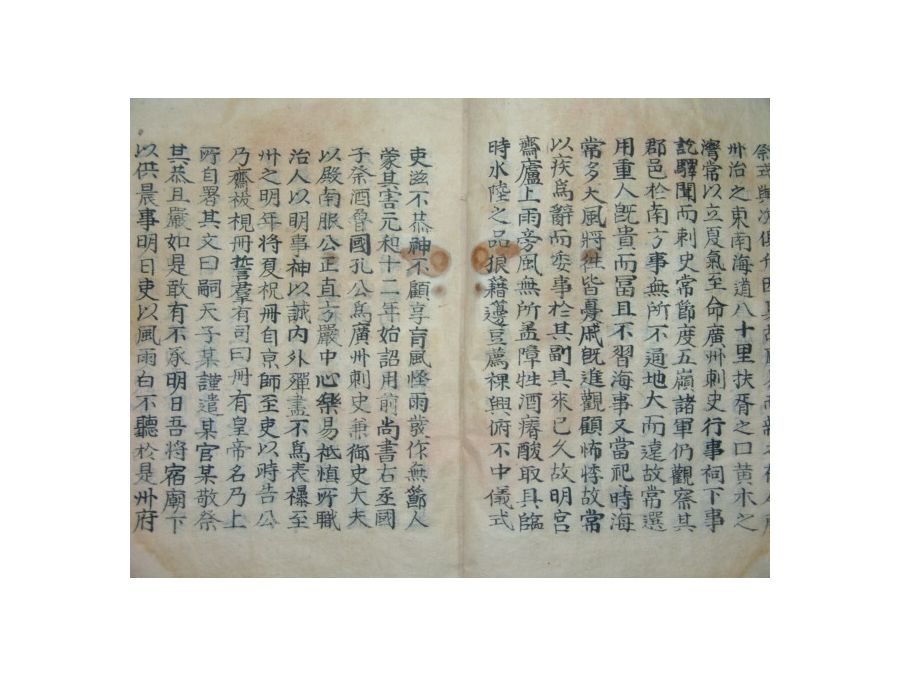 式與次俱升因其故
州治之東南海道八十里扶胥之口黃木之
灣常以立夏氣至命廣州刺史行事祠下事
訖驛聞而刺史常節度五嶺諸軍仍觀察其
郡邑於南方事無所不通地大而遠故常選
用重人旣貴而冨且不習海事又當祀時海
常多大風將徃皆憂慼旣進觀顧怖悸故常
以疾爲辭而委事於其副其來已久故明宮
齋廬上雨旁風無所盖障牲酒瘠酸取具臨
時水陸之品狼藉籩豆薦祼興俯不中儀式
吏滋不恭神不顧享盲風怪雨發作無莭人
蒙其害元和十二年始詔用前尚書右丞國
子祭酒魯國孔公爲廣州刺史兼御史大夫
以殿南服公正直方嚴中心樂易祗慎所職
治人以明事神以誠內外殫盡不爲表襮至
州之明年將夏祝冊自京師至吏以時告公
乃齋祓視冊誓羣有司曰冊有皇帝名乃上
所自署其文曰嗣天子某謹遣某官某敬祭
其恭且嚴如是敢有不承明日吾將宿廟下
以供晨事明日吏以風雨白不聽於是州府